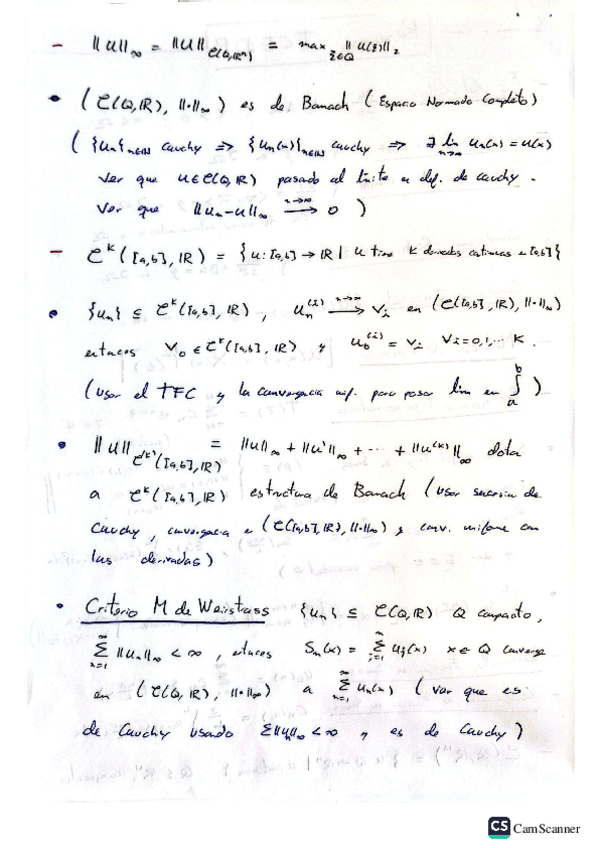 - ||u||∞ = ||u||_{C(Q,ℝᵐ)} = max_{ξ∈Q} ||u(ξ)||₂
• (C(Q,ℝ), ||·||∞) es de Banach (Espacio Normado Completo)
({uₙ}_{n∈ℕ} cauchy => {uₙ(x)}_{n∈ℕ} cauchy => ∃ lim_{n→∞} uₙ(x) = u(x)
Ver que u∈C(Q,ℝ) pasado al límite en def. de cauchy.
Ver que ||uₙ-u||∞ →^{n→∞} 0)
- Cᵏ([a,b],ℝ) = {u:[a,b]→ℝ | u tiene K derivadas continuas en [a,b]}
• {uₙ} ⊆ Cᵏ([a,b],ℝ), uₙ⁽ⁱ⁾ →^{n→∞} vᵢ en (C([a,b],ℝ), ||·||∞)
entonces v₀ ∈ Cᵏ([a,b],ℝ) y v₀⁽ⁱ⁾ = vᵢ ∀i=0,1,... K.
(usar el TFC y la convergencia unif. para pasar lim en ∫ₐᵇ)
• ||u||_{Cᵏ([a,b],ℝ)} = ||u||∞ + ||u'||∞ + ... + ||u⁽ᵏ⁾||∞ dota
a Cᵏ([a,b],ℝ) estructura de Banach (usar sucesión de
Cauchy, convergencia en (C([a,b],ℝ), ||·||∞) y conv. uniforme con
las derivadas)
• Criterio M de Weirstass {uₙ} ⊆ C(Q,ℝ) Q compacto,
∑_{n=1}^∞ ||uₙ||∞ < ∞, entonces Sₙ(x) = ∑_{j=1}^n uⱼ(x) x∈Q converge
en (C(Q,ℝ), ||·||∞) a ∑_{n=1}^∞ uₙ(x) (var que es
de Cauchy usando ∑||uₙ||∞ < ∞ y es de Cauchy)
CS CamScanner